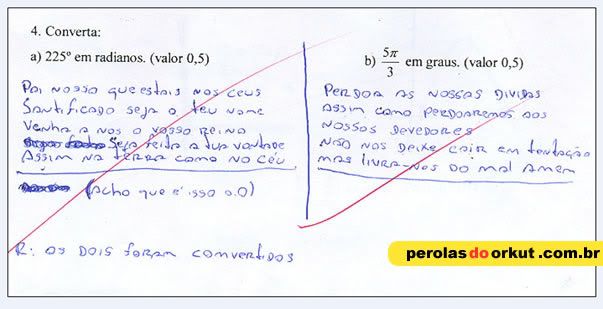 4. Converta:
a) 225º em radianos. (valor 0,5)
Pai nosso que estais nos ceus
Santificado seja o teu nome
Venha a nos o vosso reino
Seja feita a tua vontade
Assim na terra como no céu
(Acho que é isso o.O)
R: os dois foram convertidos
b) 5π/3 em graus. (valor 0,5)
Perdoa as nossas dividas
Assim como perdoaremos aos
nossos devedores
Não nos deixe cair em tentação
mas livra-nos do mal amem
perolasdoorkut.com.br